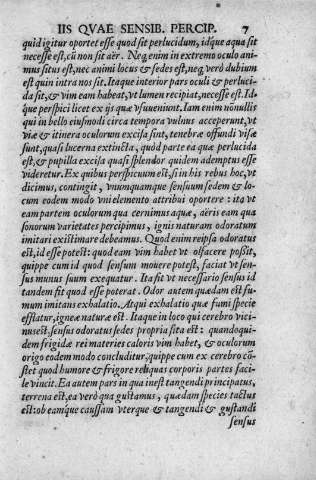 IIS QVAE SENSIB. PERCIP. 7
quid igitur oportet esse quod sit perlucidum, idq́ue aqua sit
necesse est, cũ non sit aër. Neq́ enim in extremo oculo ani
mus situs est, nec animi locus & sedes est, neq́ verò dubium
est quin intra nos sit. Itaque interior pars oculi & perluci-
da sit, & vim eam habeat, vt lumen recipiat, necesse est. Id́-
que perspici licet ex ijs quæ vsuueniunt. Iam enim nõnullis
qui in bello eiusmodi circa tempora vulnus acceperunt, vt
viæ & itinera oculorum excisa sint, tenebræ offundi visæ
sunt, quasi lucerna extincta, quòd parte ea quæ perlucida
est, & pupilla excisa quasi splendor quidem ademptus esse
videretur. Ex quibus perspicuum est, si in his rebus hoc, vt
dicimus, contingit, vnumquemque sensuum sedem & lo-
cum eodem modo vni elemento attribui oportere : ita vt
eam partem oculorum qua cernimus aquæ, aëris eam qua
sonorum varietates percipimus, ignis naturam odoratum
imitari existimare debeamus. Quod enim reipsa odoratus
est, id esse potest: quod eam vim habet vt olfacere poßit,
quippe cùm id quod sensum mouere potest, faciat vt sen-
sus munus suum exequatur. Ita fit vt necessario sensus id
tandem sit quod esse poterat. Odor autem quædam est fu-
mum imitans exhalatio. Atqui exhalatio quæ fumi specie
efflatur, igneæ naturæ est. Itaque in loco qui cerebro vici-
nus est, sensus odoratus sedes propria sita est: quandoqui-
dem frigidæ rei materies caloris vim habet, & oculorum
origo eodem modo concluditur, quippe cum ex cerebro cõ-
stet quod humore & frigore reliquas corporis partes faci-
le vincit. Ea autem pars in qua inest tangendi principatus,
terrena est, ea verò qua gustamus, quædam species tactus
est: ob eamq́ue caussam vterque & tangendi & gustandi
sensus